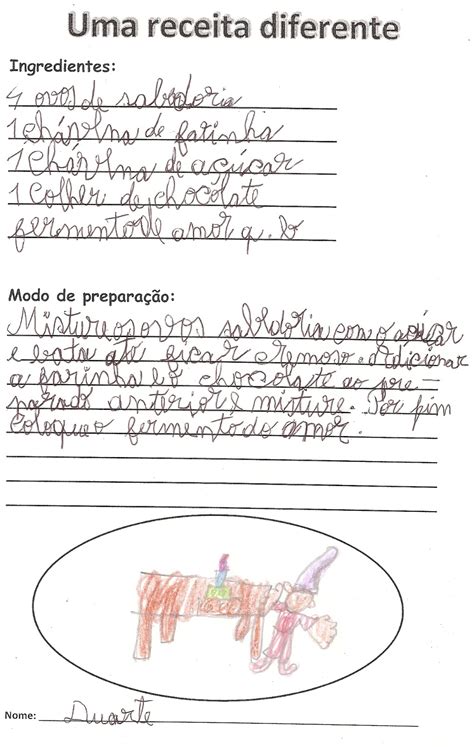 Uma receita diferente
Ingredientes:
4 ovos de sabedoria
1 chávena de farinha
1 Chávena de açúcar
1 Colher de chocolate
fermento de amor q. b
Modo de preparação:
Misture os ovos sabedoria com o açúcar
e bata até ficar cremoso. Adicionar
a farinha e o chocolate ao pre-
parado anterior e misture. Por fim
Coloque o fermento do amor.
Nome: Duarte